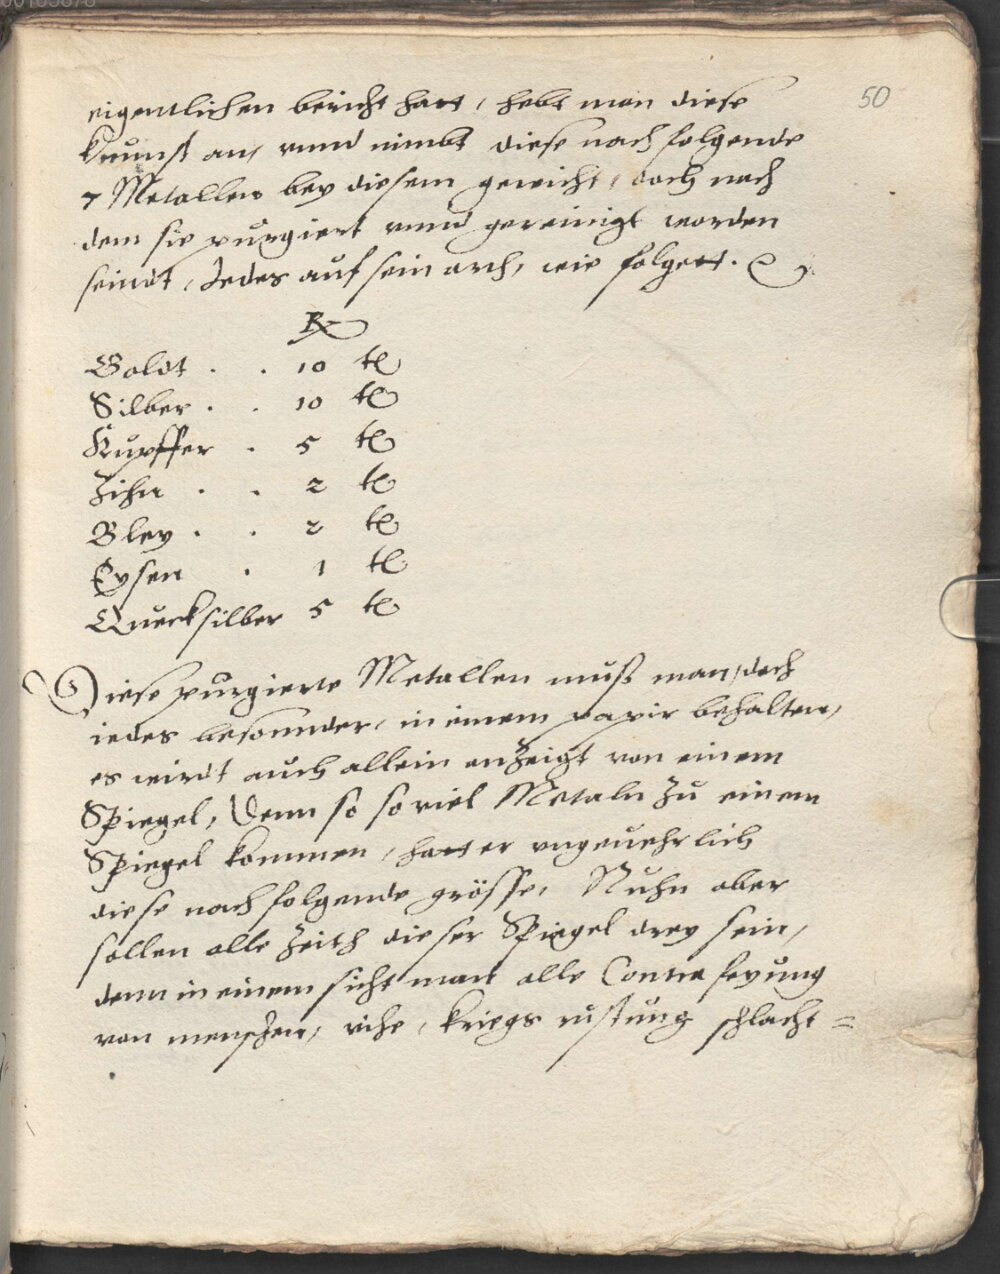 50
eigentlichen bericht hatt, hebt man diese
Kunst an, vnnd nimbt diese nachfolgende
7 Metallen bey diesem gewicht, doch nach
dem sie purgiert vnnd gereinigt worden
seindt, Jedes auf sein arth, wie folgett.
Rx
Goldt . . 10 tl
Silber . . 10 tl
Kupffer . 5 tl
Zihn . . 2 tl
Bley . . 2 tl
Eysen . 1 tl
Quecksilber 5 tl
Diese purgierte Metallen muß man, doch
iedes besonnder, in einem papir behalten,
es wirdt auch allein anzeigt von einem
Spiegel, Denn so so viel Metaln zu einem
Spiegel kommen, hatt er vngeuehrlich
diese nachfolgende grösse, Nuhn aber
sollen alle Zeith dieser Spiegel drey sein,
denn in einem sicht man alle Contrafeyung
von menschen, vihe, kriegs rustung schlacht=